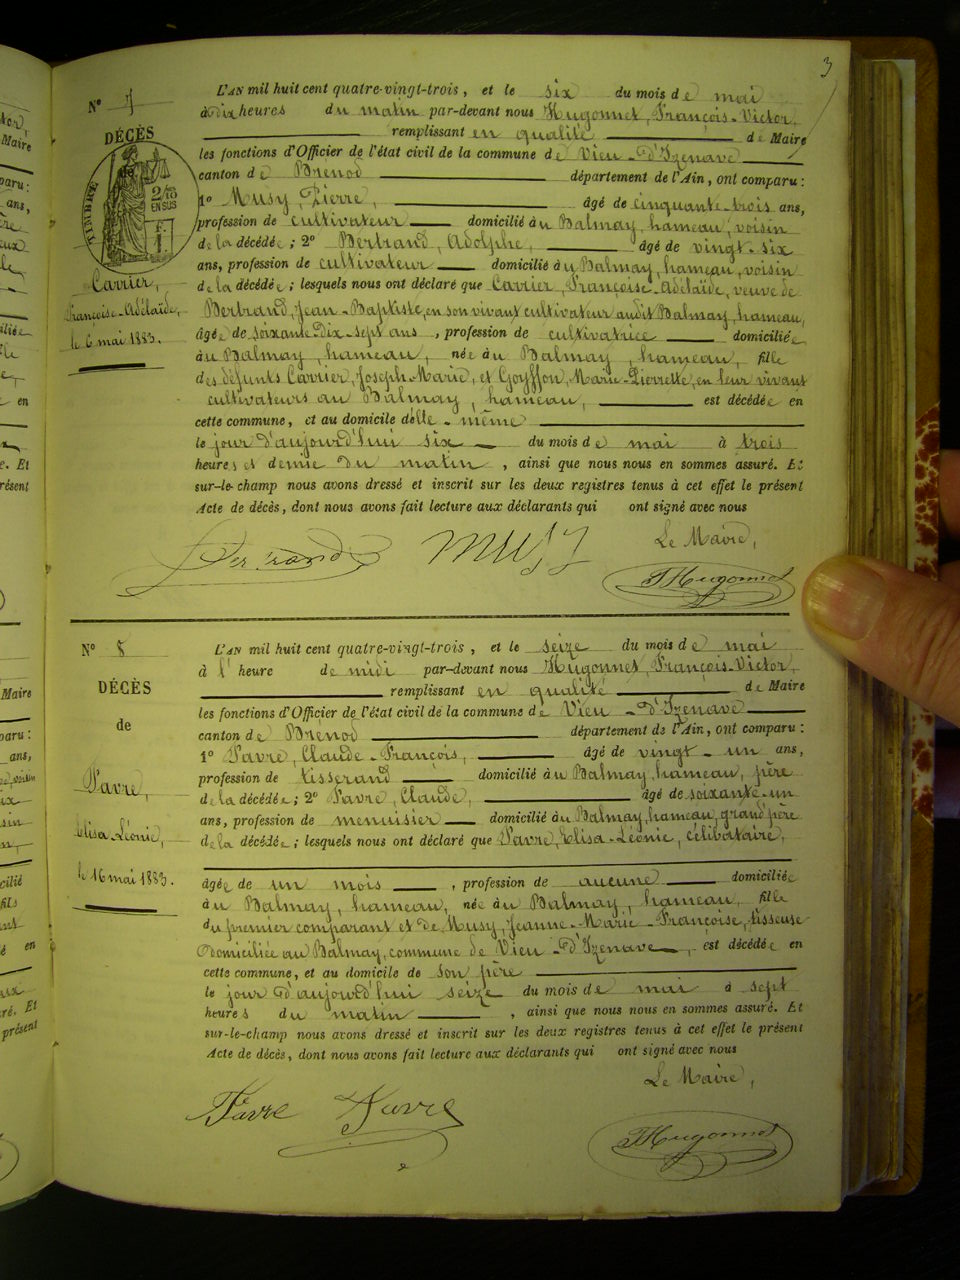 3
N° 7
DÉCÈS
TIMBRE
2/10 EN SUS
Carrier,
Françoise-Adélaïde,
le 6 mai 1883.
L'AN mil huit cent quatre-vingt-trois, et le six du mois de mai
à dix heures du matin par-devant nous Hugonnet, François-Victor,
remplissant en qualité de Maire
les fonctions d'Officier de l'état civil de la commune de Vieu-d'Izenave
canton de Brenod département de l'Ain, ont comparu :
1° Musy, Pierre, âgé de cinquante-trois ans,
profession de cultivateur domicilié au Balmay, hameau, voisin
de la décédée ; 2° Bertrand, Adolphe, âgé de vingt-six
ans, profession de cultivateur domicilié au Balmay, hameau, voisin
de la décédée ; lesquels nous ont déclaré que Carrier, Françoise-Adélaïde, veuve de
Bertrand, Jean-Baptiste, en son vivant cultivateur audit Balmay, hameau,
âgée de soixante Dix-sept ans, profession de cultivatrice domiciliée
au Balmay, hameau, née au Balmay, hameau, fille
des défunts Carrier, Joseph-Marie, et Goyffon, Marie-Pierrette, en leur vivant
cultivateurs au Balmay, hameau, est décédée en
cette commune, et au domicile d'elle-même
le jour d'aujourd'hui six du mois de mai à trois
heures et demie du matin, ainsi que nous nous en sommes assuré. Et
sur-le-champ nous avons dressé et inscrit sur les deux registres tenus à cet effet le présent
Acte de décès, dont nous avons fait lecture aux déclarants qui ont signé avec nous
Le Maire,
Bertrand Musy FHugonnet
N° 8
DÉCÈS
de
Favre,
Elisa-Léonie,
le 16 mai 1883.
L'AN mil huit cent quatre-vingt-trois, et le seize du mois de mai
à l'heure de midi par-devant nous Hugonnet, François-Victor,
remplissant en qualité de Maire
les fonctions d'Officier de l'état civil de la commune de Vieu-d'Izenave
canton de Brenod département de l'Ain, ont comparu :
1° Favre, Claude-François, âgé de vingt-un ans,
profession de tisserand domicilié au Balmay, hameau, père
de la décédée ; 2° Favre, Claude, âgé de soixante-un
ans, profession de menuisier domicilié au Balmay, hameau, grand père
de la décédée ; lesquels nous ont déclaré que Favre, Elisa-Léonie, célibataire,
âgée de un mois, profession de aucune domiciliée
au Balmay, hameau, née au Balmay, hameau, fille
du premier comparant et de Musy, Jeanne-Marie-Françoise, tisseuse
domiciliée au Balmay, commune de Vieu-d'Izenave, est décédée en
cette commune, et au domicile de son père
le jour d'aujourd'hui seize du mois de mai à sept
heures du matin, ainsi que nous nous en sommes assuré. Et
sur-le-champ nous avons dressé et inscrit sur les deux registres tenus à cet effet le présent
Acte de décès, dont nous avons fait lecture aux déclarants qui ont signé avec nous
Le Maire,
Favre Favre FHugonnet